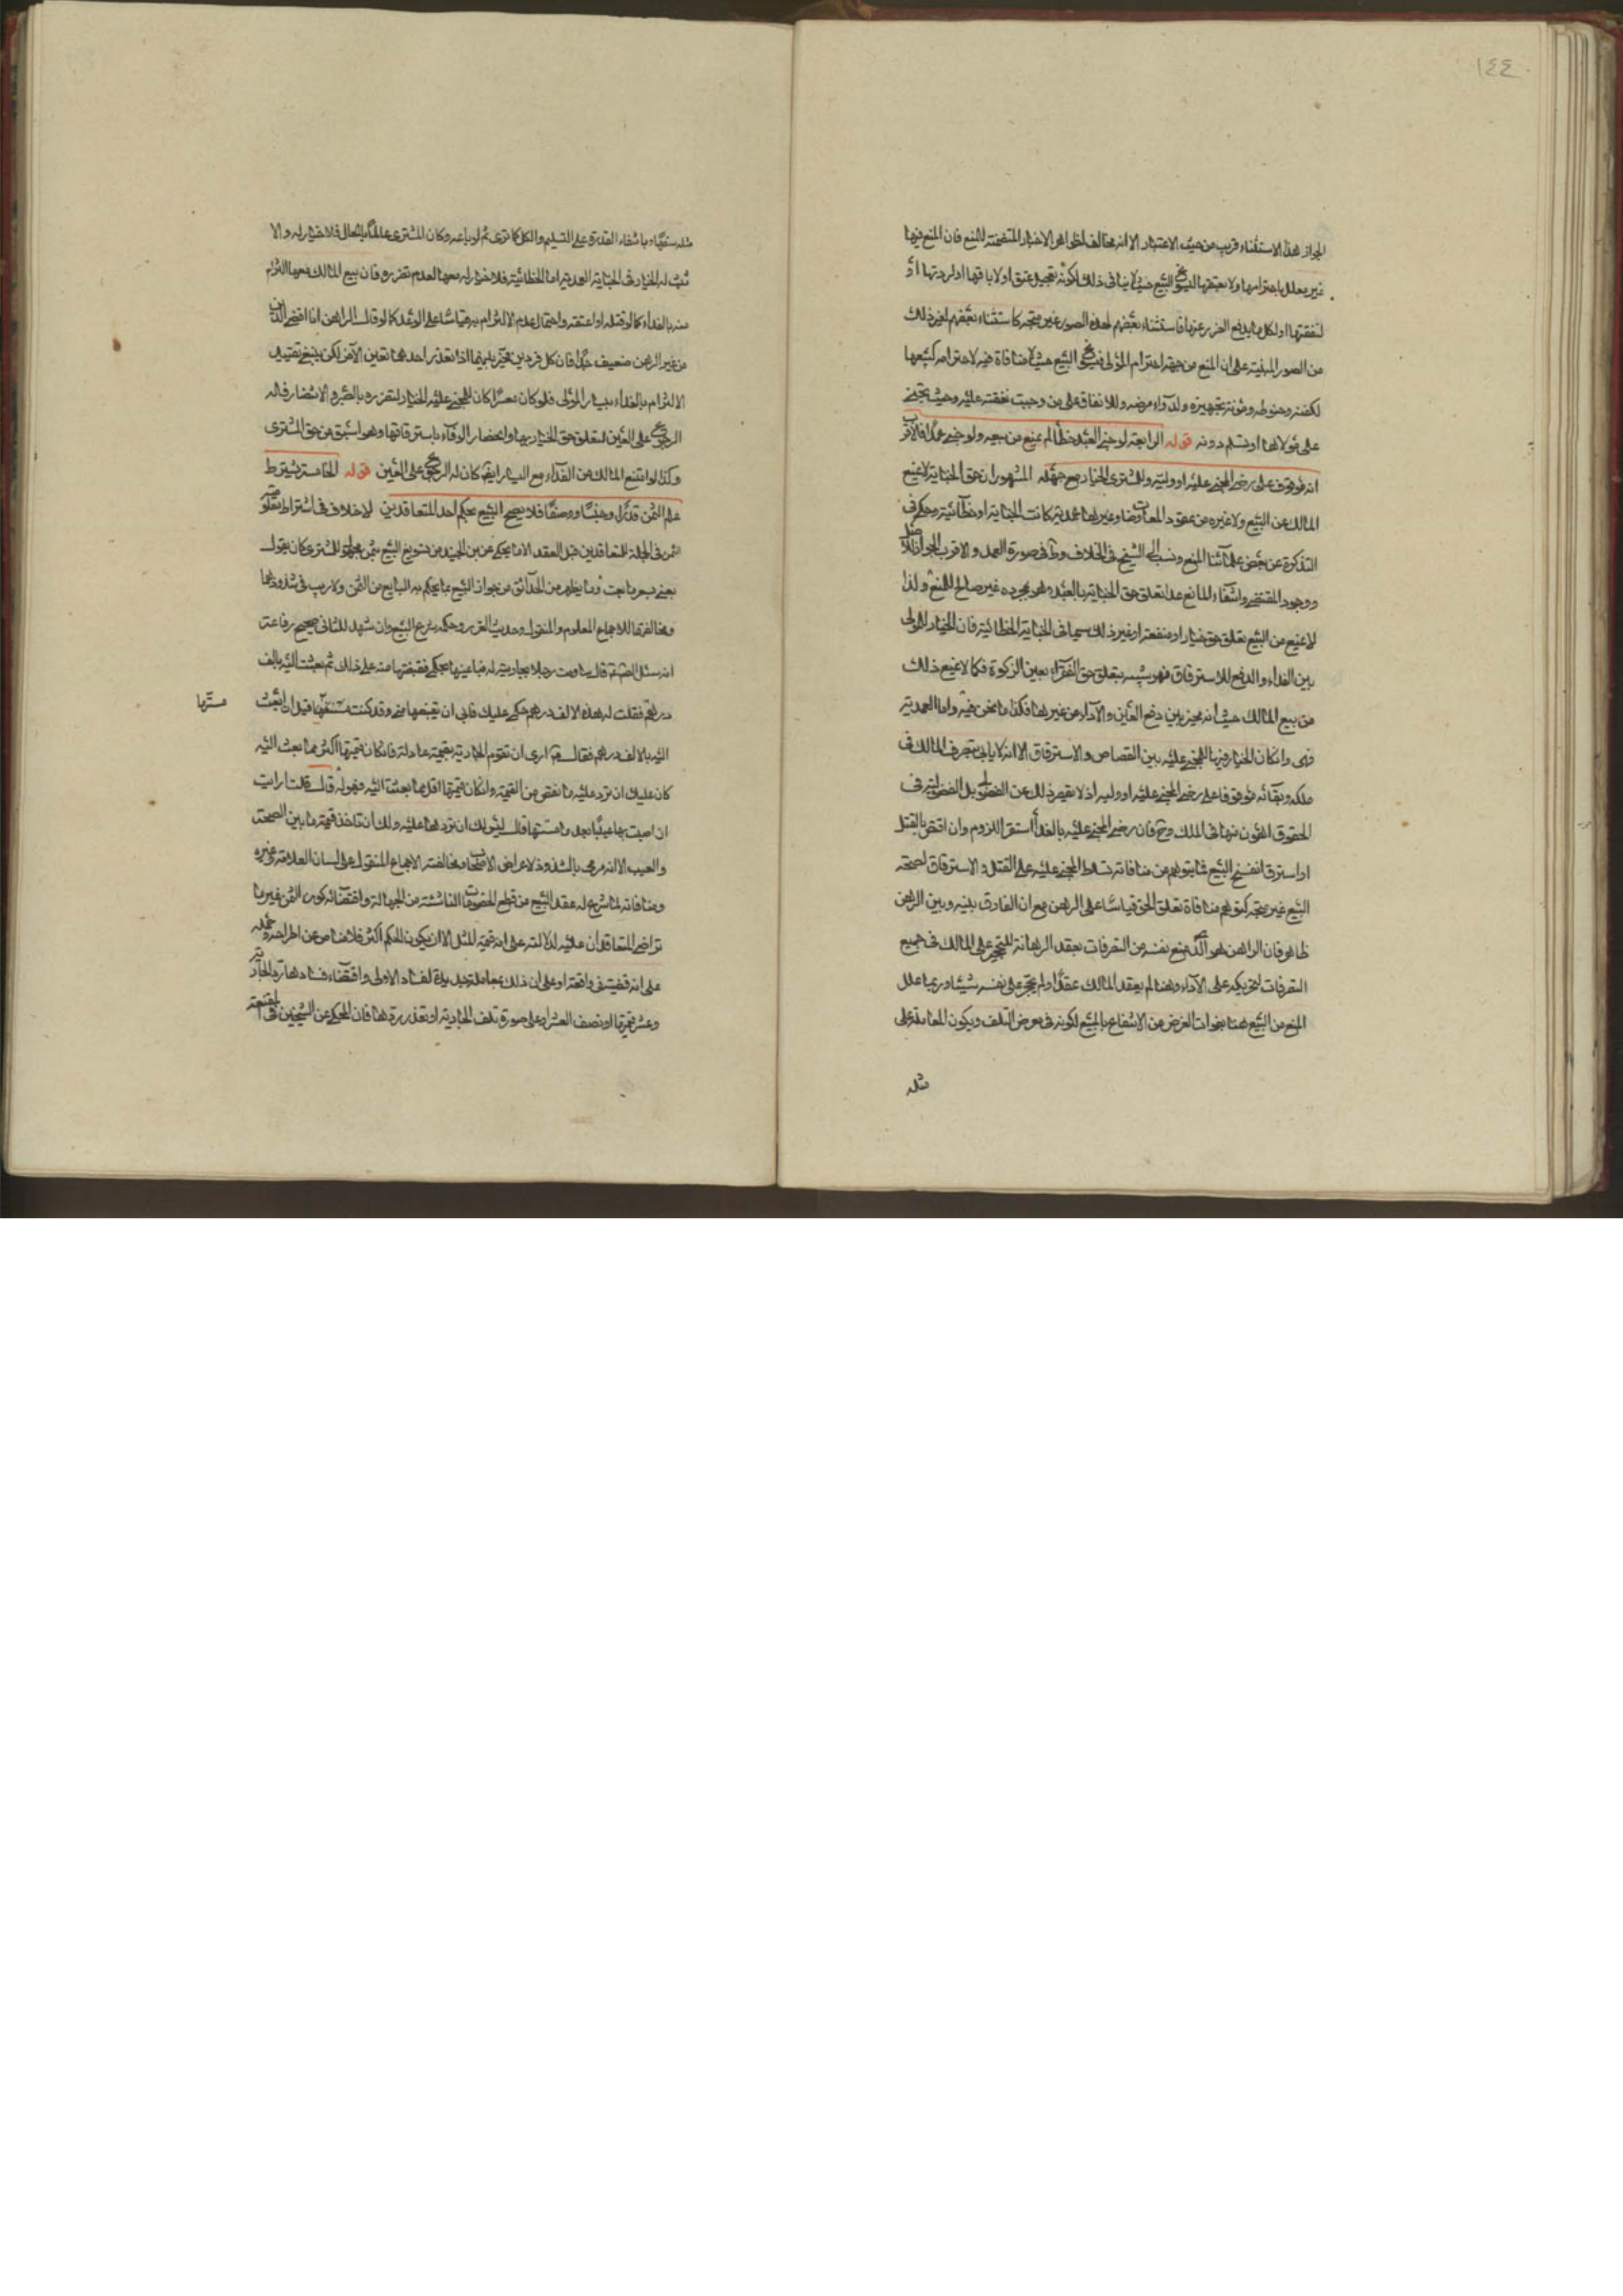 ١٤٤
الجواز هذا الاستثناء قريب من حيث الاعتبار الا انه مخالف لظواهر الاخبار المتضمنة للمنع فان المنع فيها
غير معلل باحترامها ولا بعتقها البيع حيث لا ينافى ذلك لكونه تعجيل عتق او لاباقها او لردتها او
لنفقتها او لكل ما يدفع الضرر عنها فاستثناء بعضهم لهذه الصور غير متجه كاستثناء بعضهم لغير ذلك
من الصور المبنية على ان المنع من جهة احترام المولى البيع حيث لا منافاة فيه لاحترامه كبيعها
لكفنه وحنوطه ومؤنة تجهيزه ولدواء مرضه وللانفاق على من وجبت نفقته عليه وحيث تجنى
على مولاها او تسلم دونه قوله الرابعة لو جنى العبد خطأ لم يمنع من بيعه ولو جنى عمدا فالاقرب
انه موقوف على رضى المجنى عليه او وليه وللمشترى الخيار مع جهله المشهور ان حق الجناية لا يمنع
المالك من البيع ولا غيره من عقود المعاوضات وغيرها عمدية كانت الجناية او خطائية وحكى فى
التذكرة عن بعض علمائنا المنع ونسب الى الشيخ فى الخلاف وط فى صورة العمد والاقرب الجواز
ووجود المقتضى وانتفاء المانع عدا تعلق حق الجناية بالعبد وهو بمجرده غير صالح للمنع ولذا
لا يمنع من البيع تعلق حق خيار او منفعة او غير ذلك سيما فى الجناية الخطائية فان الخيار للمولى
بين الفداء والدفع للاسترقاق فهو شبيه بتعلق حق الفقراء بعين الزكوة فكما لا يمنع ذلك
من بيع المالك حيث انه مخير بين دفع العين والاداء من غيرها فكذا ما نحن فيه واما العمدية
فهى وان كان الخيار فيها للمجنى عليه بين القصاص والاسترقاق الا انه لا يابى تصرف المالك فى
ملكه وبقائه موقوفا على رضى المجنى عليه او وليه اذ لا يقصر ذلك عن الفضولى بل الفضولية فى
الحقوق اهون منها فى الملك وح فان رضى المجنى عليه بالفداء استقر اللزوم وان اقتص بالقتل
او استرق انفسخ البيع فما يتوهم من منافاة تسلط المجنى عليه على القتل والاسترقاق لصحة
البيع غير متجه كتوهم منافاة تعلق الحق قياسا على الرهن مع ان الفارق بينه وبين الرهن
ظاهر فان الراهن هو الذى منع نفسه من التصرفات بعقد الرهانة للتحجير على المالك فى جميع
التصرفات لتحريكه على الاداء وهنا لم يعقد المالك عقدا ولم يحجر على نفسه شيئا وربما علل
المنع من البيع هنا بفوات الغرض من الانتفاع بالمبيع لكونه فى معرض التلف ويكون المعاملة على
مثله
مثله سفها وبانتفاء القدرة على التسليم والكل كما ترى ثم لو باعه وكان المشترى عالما بالحال فلا خيار له والا
ثبت له الخيار فى الجناية العمدية اما الخطائية فلا خيار له معها لعدم تضرره فان بيع المالك معها التزام
منه بالفداء كما لو قتله او اعتقه واحتمال عدم الالتزام به قياسا على الوعد كما لو قال الراهن انا اقضى الدين
من غير الرهن ضعيف جدا فان كل فردين مخير بينهما اذا تعذر احدهما تعين الاخر لكن ينبغى تقييد
الالتزام بالفداء بيسار المولى فلو كان معسرا كان للمجنى عليه الخيار لتضرره بالصبر والانتظار فله
الرجوع على العين لتعلق حق الخيار بها وانحصار الوفاء باسترقاقها وهو اسبق من حق المشترى
وكذا لو امتنع المالك من الفداء مع اليسار ايضا كان له الرجوع على العين قوله الخامسة يشترط
علم الثمن قدرا وجنسا ووصفا فلا يصح البيع بحكم احد المتعاقدين لا خلاف فى اشتراط
الثمن فى الجملة للمتعاقدين قبل العقد الا ما يحكى عن ابن الجنيد من تسويغ البيع بثمن مجهول للمشترى كان يقول
بعنى بسعر ما بعت وما يظهر من الحدائق من جواز البيع بما يحكم به البايع من الثمن ولا ريب فى شذوذهما
ومخالفتهما للاجماع المعلوم والمنقول وحديث الغرر وحكمة شرع البيع وان شهد للثانى صحيح رفاعة
انه سئل الصادق قال ساومت رجلا بجارية له فباعنيها بحكمى فقبضتها منه على ذلك ثم بعثت اليه بالف
درهم فقلت له هذه الالف درهم حكمى عليك فابى ان يقبضها منى وقد كنت مسستها قبل ان ابعث
مسستها
اليه بالالف درهم فقال ارى ان تقوم الجارية بقيمة عادلة فان كان قيمتها اكثر مما بعث اليه
كان عليك ان ترد عليه ما نقص من القيمة وان كان قيمتها اقل مما بعثت اليه فهو له قال قلت ارايت
ان اصبت بها عيبا بعد ما مسستها قال ليس لك ان تردها عليه ولك ان تاخذ قيمة ما بين الصحة
والعيب الا انه مرمى بالشذوذ لاعراض الاصحاب ومخالفته الاجماع المنقول على لسان العلامة وغيره
ومنافاته لما شرع له عقد البيع من قطع الخصومات الناشئة من الجهالة واقتضائه كون الثمن غير ما
تراضى المتعاقدان عليه لدلالته على انه قيمة المثل الا ان يكون الحكم اكثر فلا مناص عن اطراحه وحمله
على انه قضية فى واقعة او على ان ذلك معاملة جديدة لفساد الاولى واقتضاء فسادها رد الجارية
وعشر قيمتها او نصف العشر او على صورة تلف الجارية او تعذر ردها فان المحكى عن الشيخين فى المقنعة